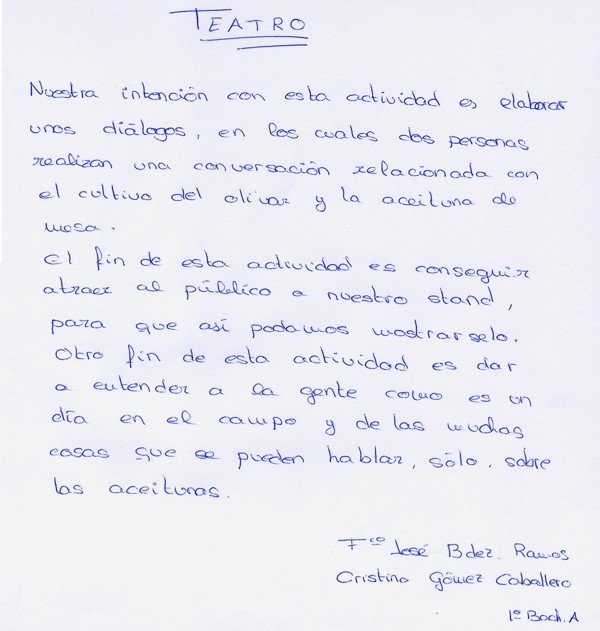 TEATRO
Nuestra intención con esta actividad es elaborar
unos diálogos, en los cuales dos personas
realizan una conversación relacionada con
el cultivo del olivar y la aceituna de
mesa.
El fin de esta actividad es conseguir
atraer al público a nuestro stand,
para que así podamos mostrarselo.
Otro fin de esta actividad es dar
a entender a la gente como es un
día en el campo y de las muchas
cosas que se pueden hablar, sólo, sobre
las aceitunas.
Fco José Bdez. Ramos
Cristina Gómez Caballero
1º Bach. A